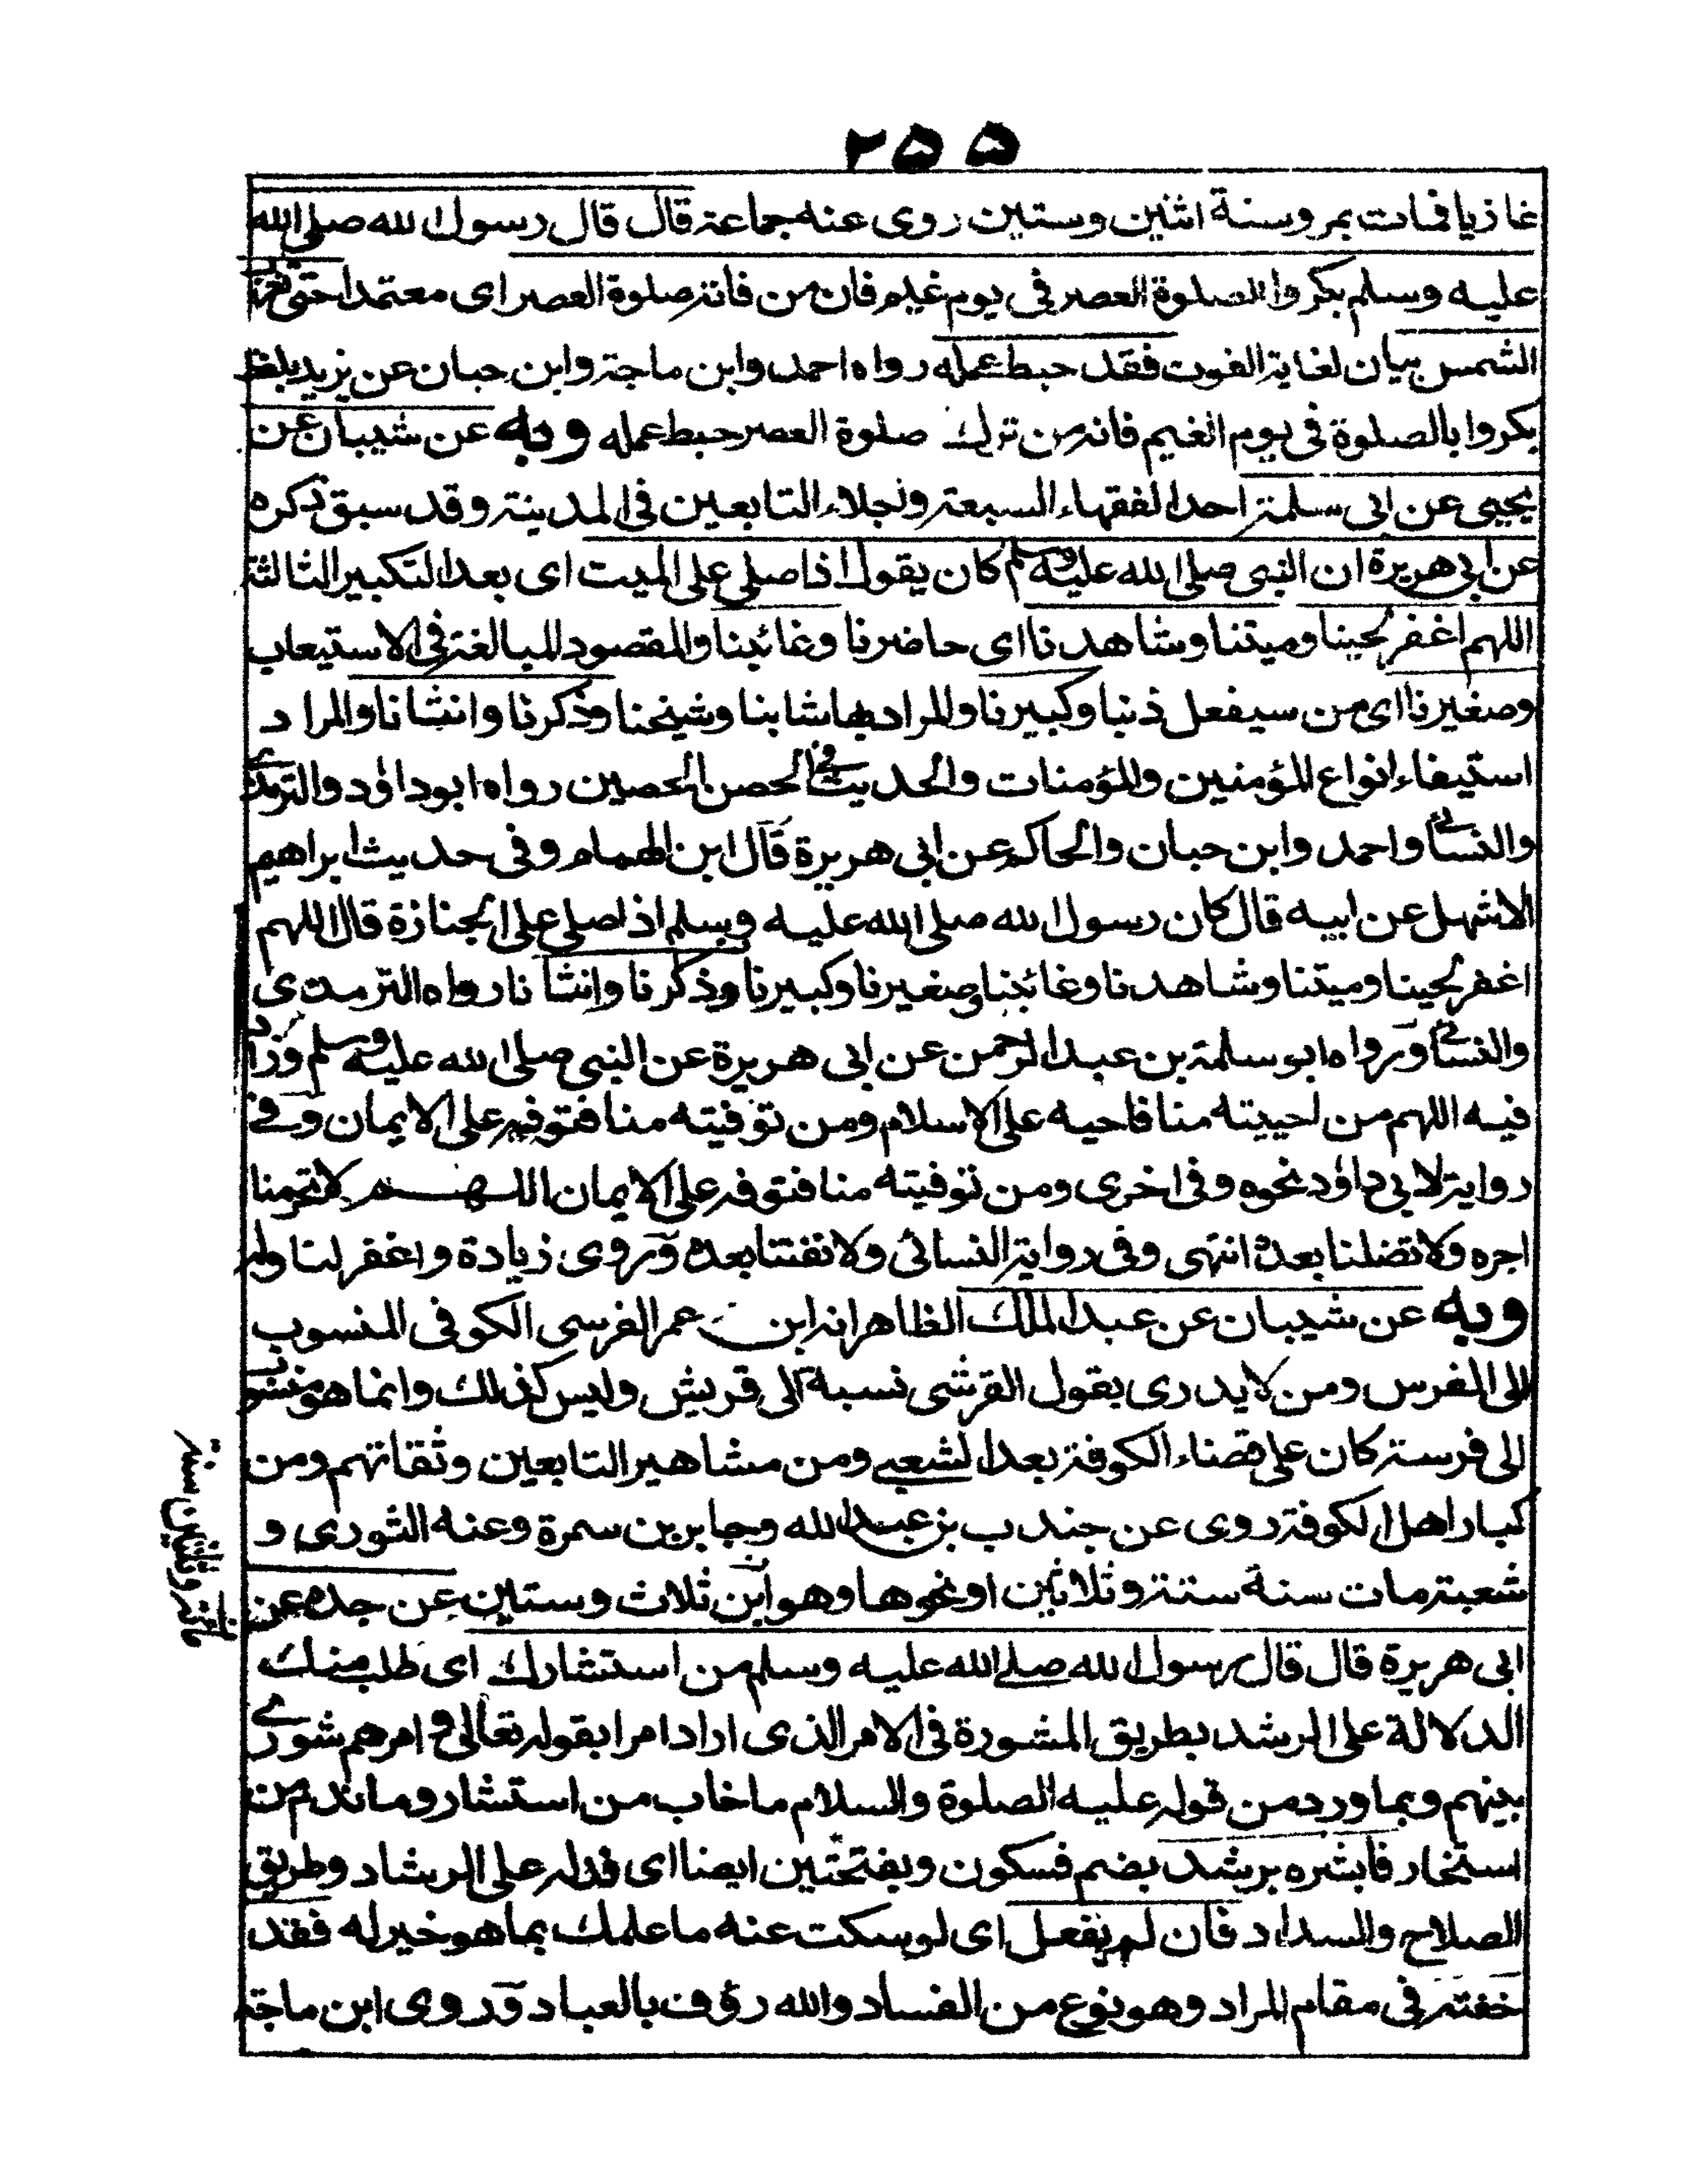 ٢٥٥
غازيا فمات بمرو سنة اثنين وستين روى عنه جماعة قال قال رسول الله صلى الله
عليه وسلم بكروا الصلوة العصر فى يوم غيم فان من فاتته صلوة العصر اى معتمدا حتى تغرب
الشمس بيان لغاية الفوت فقد حبط عمله رواه احمد وابن ماجة وابن حبان عن يزيد بلفظ
بكروا بالصلوة فى يوم الغيم فانه من ترك صلوة العصر حبط عمله وبه عن شيبان عن
يحيى عن ابى سلمة احد الفقهاء السبعة واجلاء التابعين فى المدينة وقد سبق ذكره
عن ابى هريرة ان النبى صلى الله عليه وسلم كان يقول اذا صلى على الميت اى بعد التكبير الثالثة
اللهم اغفر لحينا وميتنا وشاهدنا اى حاضرنا وغائبنا والمقصود المبالغة فى الاستيعاب
وصغيرنا اى من سيفعل ذنبا وكبيرنا والمراد بهما شابنا وشيخنا وذكرنا وانثانا والمراد
استيفاء انواع المؤمنين والمؤمنات والحديث فى الحصن الحصين رواه ابو داؤد والترمذى
والنسائى واحمد وابن حبان والحاكم عن ابى هريرة قال ابن الهمام وفى حديث ابراهيم
الاشهل عن ابيه قال كان رسول الله صلى الله عليه وسلم اذا صلى على الجنازة قال اللهم
اغفر لحينا وميتنا وشاهدنا وغائبنا وصغيرنا وكبيرنا وذكرنا وانثانا رواه الترمذى
والنسائى ورواه ابو سلمة بن عبد الرحمن عن ابى هريرة عن النبى صلى الله عليه وسلم وزاد
فيه اللهم من احييته منا فاحيه على الاسلام ومن توفيته منا فتوفه على الايمان وفى
رواية لابى داؤد نحوه وفى اخرى ومن توفيته منا فتوفه على الايمان اللهم لا تحرمنا
اجره ولا تضلنا بعده انتهى وفى رواية النسائى ولا تفتنا بعده وروى زيادة واغفر لنا وله
وبه عن شيبان عن عبد الملك الظاهر انه ابن عمر الفرسى الكوفى المنسوب
الى الفرس ومن لا يدرى يقول القرشى نسبة الى قريش وليس كذلك وانما هو منسوب
الى فرسة كان على قضاء الكوفة بعد الشعبى ومن مشاهير التابعين وثقاتهم ومن
كبار اهل الكوفة روى عن جندب بن عبد الله وجابر بن سمرة وعنه الثورى و
شعبة مات سنة ستة وثلاثين او نحوها وهو ابن ثلاث وستين عن جده عن
ابى هريرة قال قال رسول الله صلى الله عليه وسلم من استشارك اى طلب منك
الدلالة على الرشد بطريق المشورة فى الامر الذى اراد امرا بقوله تعالى و امرهم شورى
بينهم وبما ورد من قوله عليه الصلوة والسلام ما خاب من استشار وما ندم من
استخار فابشره برشد بضم فسكون وبفتحتين ايضا اى فدله على الرشاد وطريق
الصلاح والسداد فان لم يفعل اى لو سكت عنه ما علمك بما هو خير له فقد
خفته فى مقام المراد وهو نوع من الفساد والله رؤف بالعباد وروى ابن ماجة
مائة وثلاثين سنة